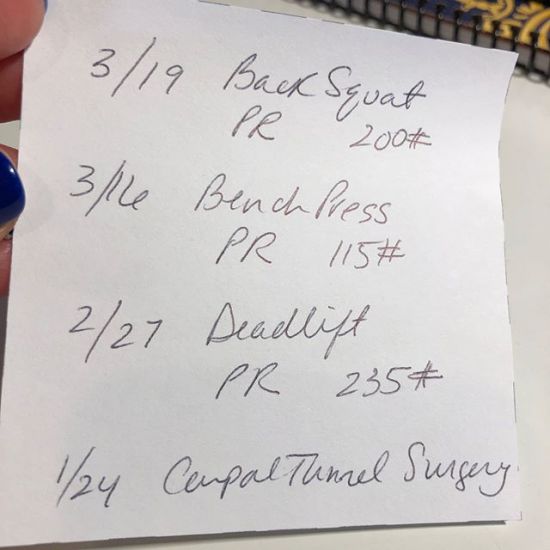 3/19 Back Squat
PR 200#
3/16 Bench Press
PR 115#
2/27 Deadlift
PR 235#
1/24 Carpal Tunnel Surgery